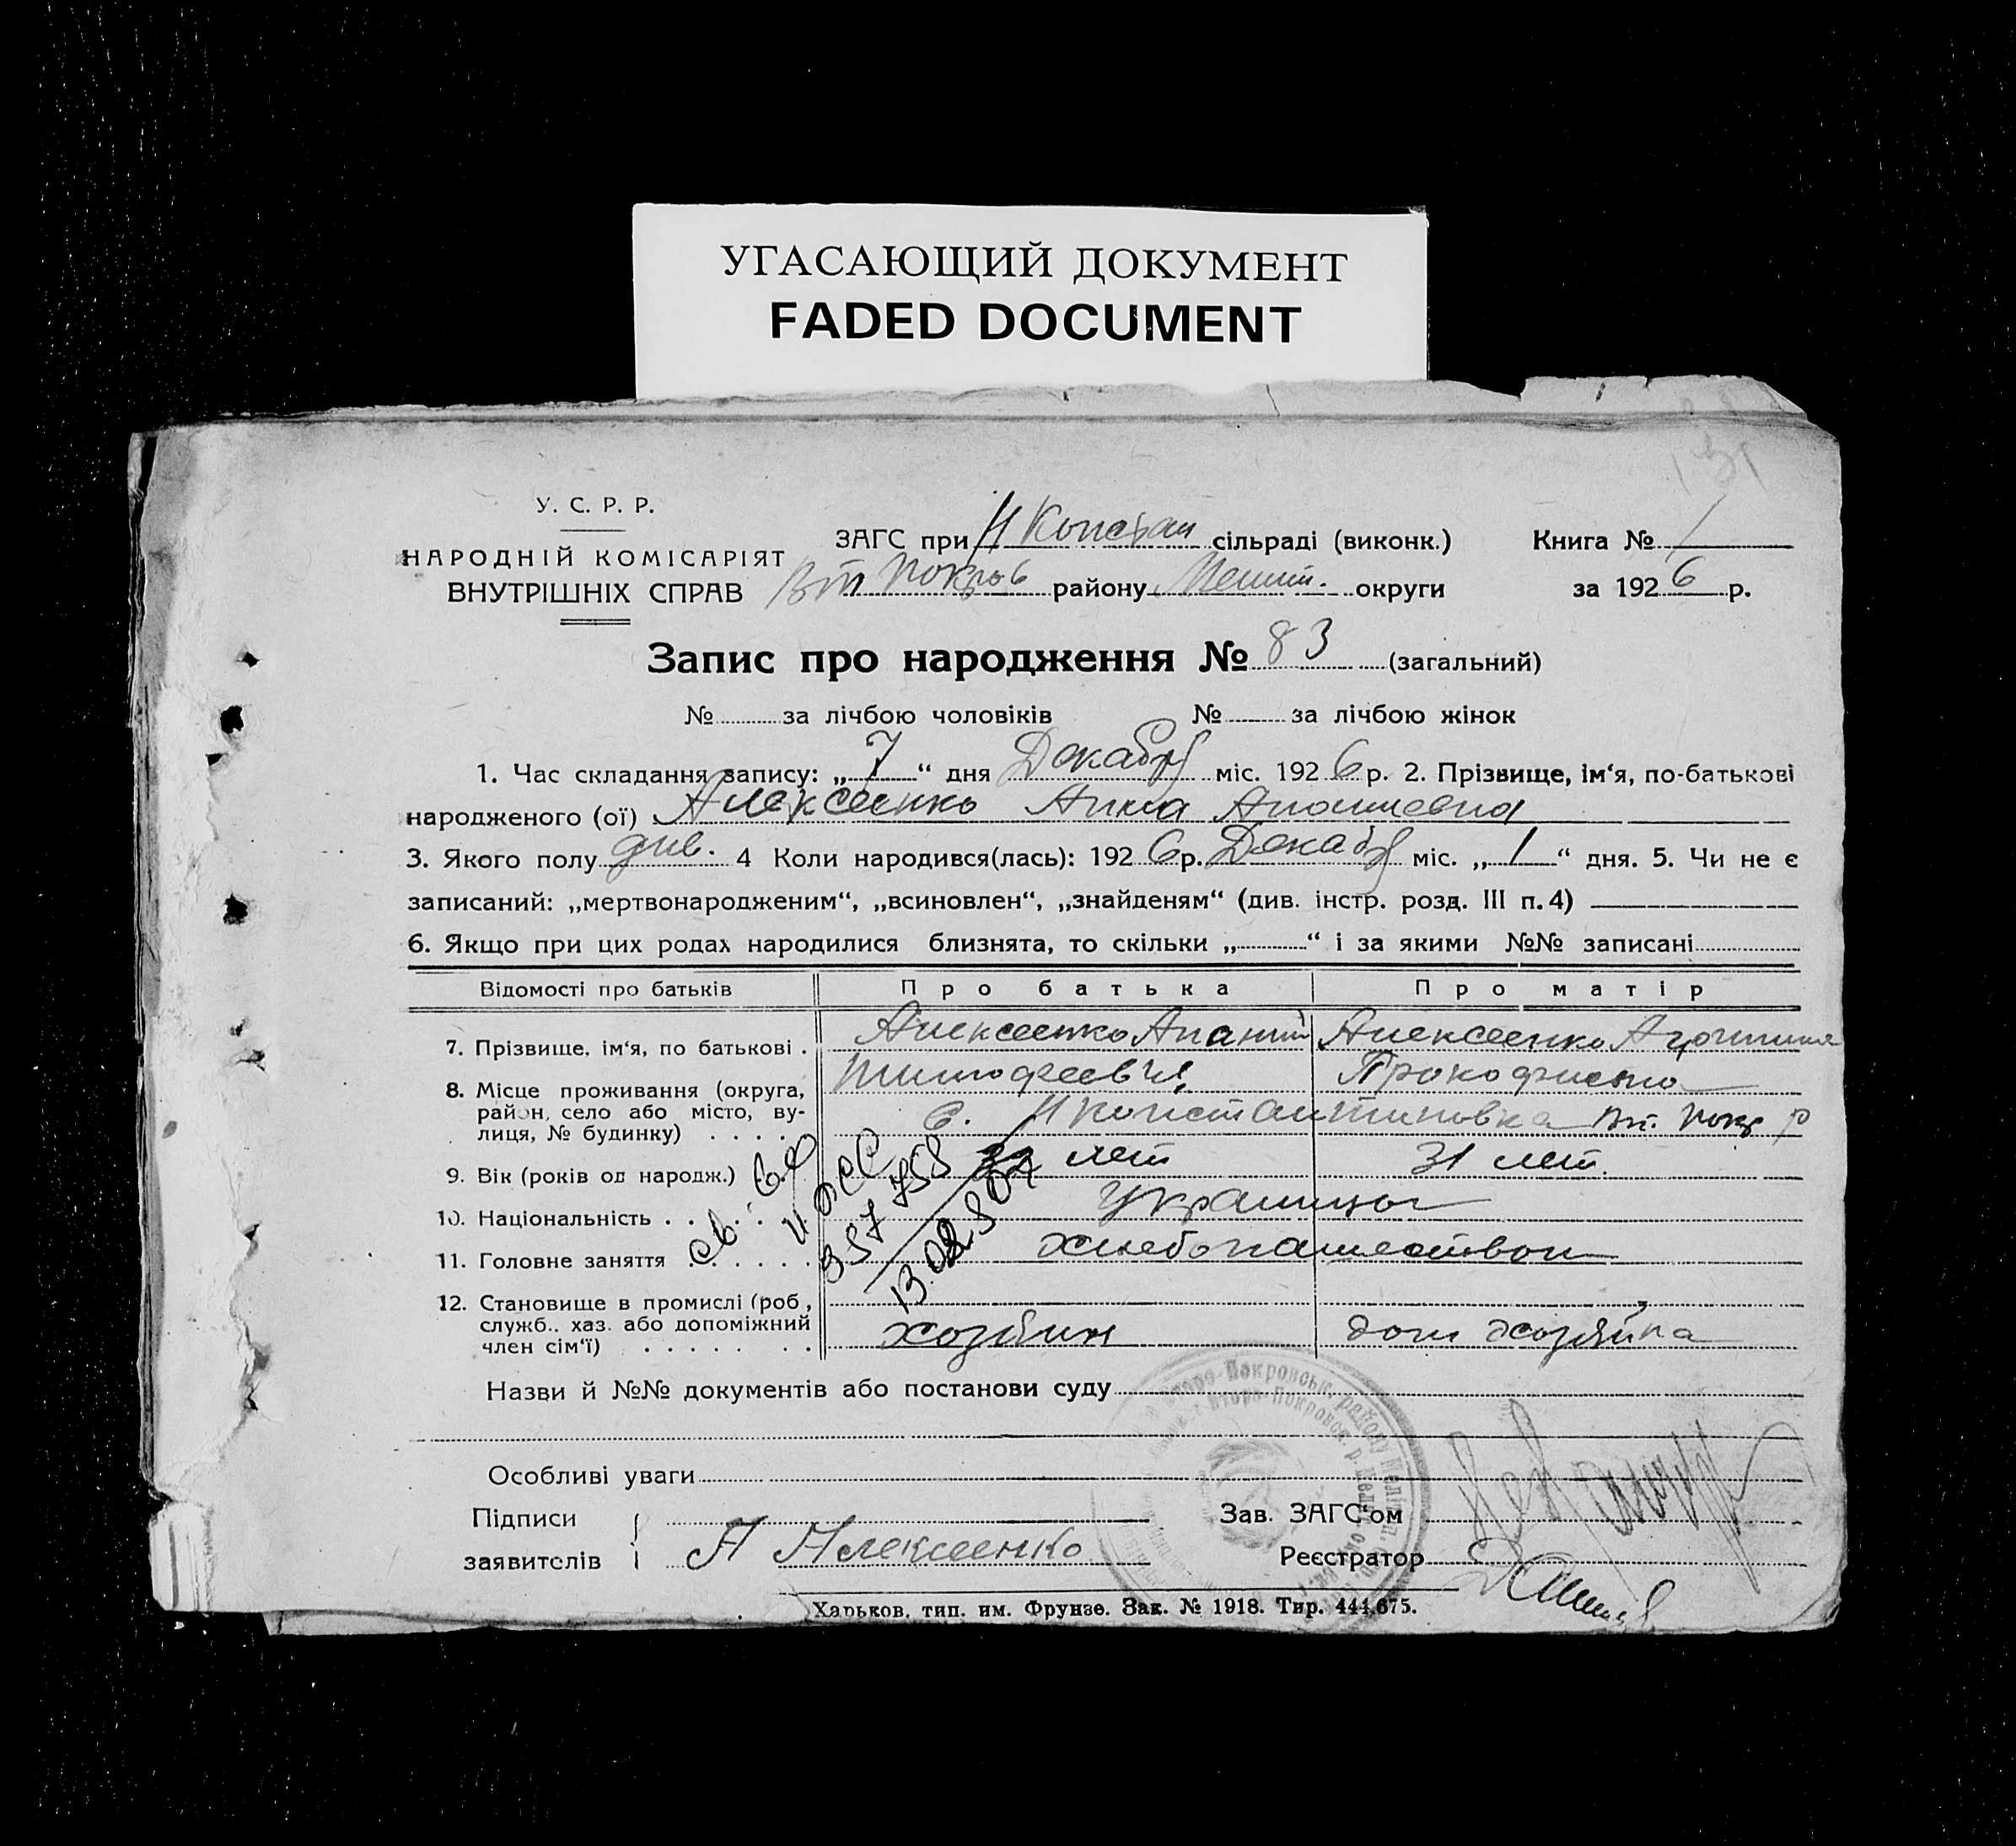 УГАСАЮЩИЙ ДОКУМЕНТ
FADED DOCUMENT
У. С. Р. Р.
НАРОДНІЙ КОМІСАРІЯТ
ВНУТРІШНІХ СПРАВ
ЗАГС при Н Констан сільраді (виконк.) Книга № 1
Вт Покров району Мелит. округи за 1926 р.
Запис про народження № 83 (загальний)
№ за лічбою чоловіків № за лічбою жінок
1. Час складання запису: „7“ дня Декабря міс. 1926 р. 2. Прізвище, ім‘я, по-батькові
народженого (ої) Алексеенко Анна
3. Якого полу 4 Коли народився(лась): 1926 р. Декабря міс. „1“ дня. 5. Чи не є
записаний: „мертвонародженим“, „всиновлен“, „знайденям“ (див. інстр. розд. III п. 4)
6. Якщо при цих родах народилися близнята, то скільки „ “ і за якими №№ записані
Відомості про батьків Про батька Про матір
7. Прізвище, ім‘я, по батькові . Алексеенко Алексеенко
Тимофеевич
8. Місце проживання (округа,
район, село або місто, ву-
лиця, № будинку) . . . . с. Н Константиновка Вт. Покр р
9. Вік (років од народж.) 32 лет 31 лет.
10. Національність . . . . . Украинцы
11. Головне заняття . . . . . . хлебопашеством
12. Становище в промислі (роб.,
служб., хаз. або допоміжний
член сім‘ї) . . . . . . . хозяин дом хозяйка
13.02.
Назви й №№ документів або постанови суду
Особливі уваги
Підписи
заявителів А Алексеенко
Зав. ЗАГС‘ом
Реєстратор
Харьков. тип. им. Фрунзе. Зак. № 1918. Тир. 444.675.